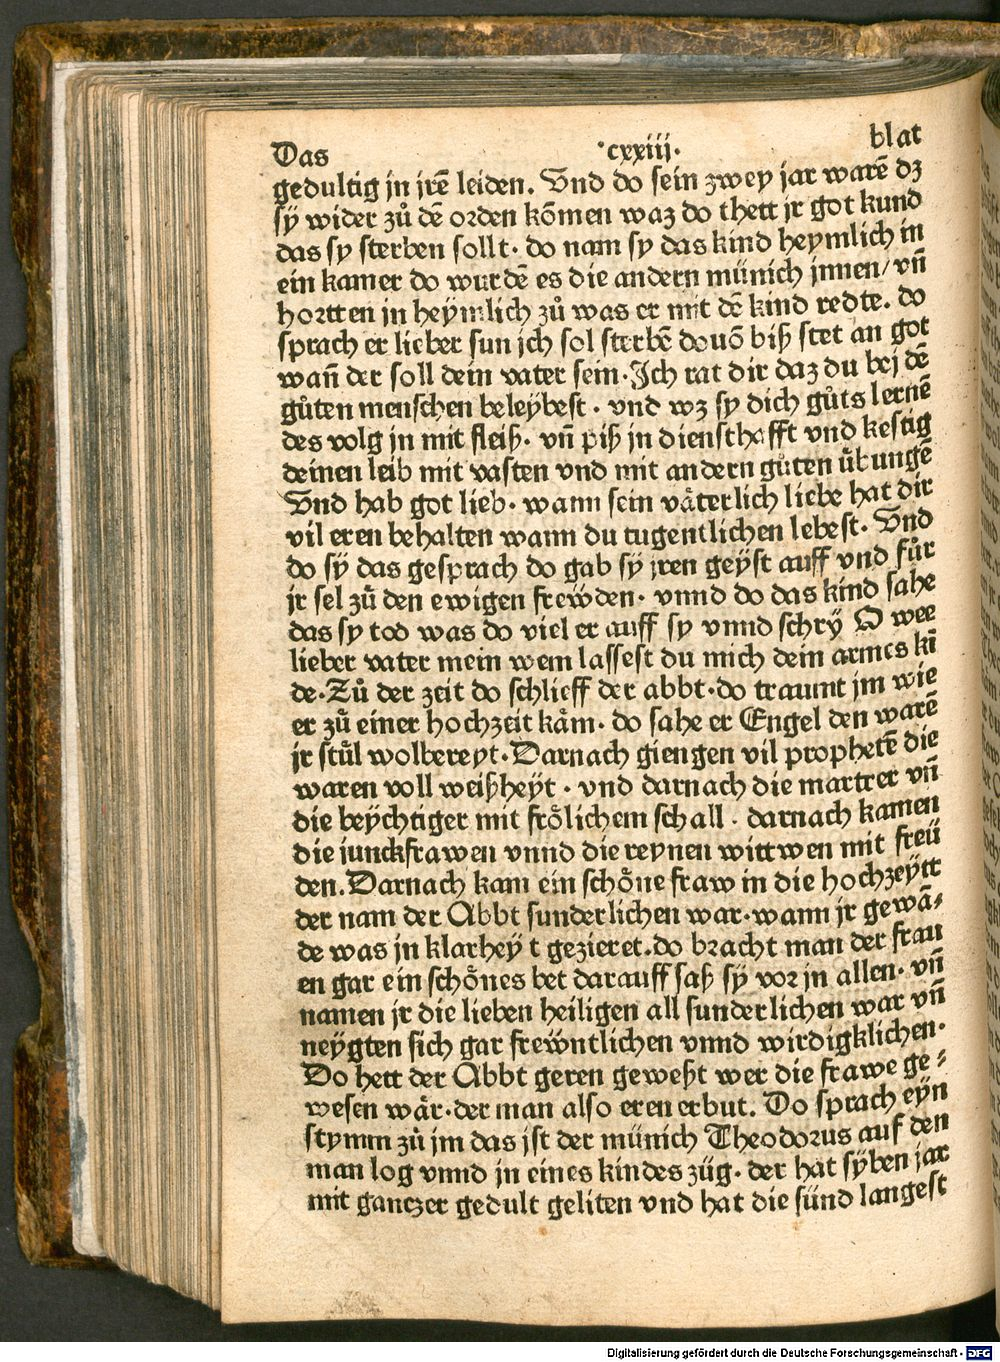 Das ·cxxiij· blat
gedultig jn jrẽ leiden. Vnd do sein zwey jar warẽ dz
sÿ wider zů dẽ orden kõmen waz do thett jr got kund
das sy sterben sollt· do nam sy das kind heymlich in
ein kamer do wurdẽ es die andern münich jnnen/ vñ
hortten jn heÿmlich zů was er mit dẽ kind redte. do
sprach er lieber sun jch sol sterbẽ douõ biß stet an got
wañ der soll dein vater sein·Jch rat dir daz du bej dẽ
gůten menschen beleÿbest· vnd wz sy dich gůts lernẽ
des volg jn mit fleiß· vñ piß jn diensthafft vnd kestig
deinen leib mit vasten vnd mit andern gůten ůbungẽ
Vnd hab got lieb· wann sein vȧterlich liebe hat dir
vil eren behalten wann du tugentlichen lebest· Vnd
do sÿ das gesprach do gab sÿ jren geÿst auff vnd fůr
jr sel zů den ewigen frewden· vnnd do das kind sahe
das sy tod was do viel er auff sy vnnd schrÿ O wee
lieber vater mein wem lassest du mich dein armes kĩ
de·Zů der zeit do schlieff der abbt·do traumt jm wie
er zů einer hochzeit kȧm· do sahe er Engel den warẽ
jr stůl wolbereyt·Darnach giengen vil prophetẽ die
waren voll weißheÿt· vnd darnach die martrer vñ
die beÿchtiger mit frölichem schall· darnach kamen
die iunckfrawen vnnd die reynen wittwen mit freü
den.Darnach kam ein schöne fraw in die hochzeÿtt
der nam der Abbt sunderlichen war·wann jr gewã⸗
de was jn klarheÿt gezieret.do bracht man der frau
en gar ein schönes bet darauff saß sÿ vor jn allen· vñ
namen jr die lieben heiligen all sunderlichen war vñ
neÿgten sich gar frewntlichen vnnd wirdigklichen·
Do hett der Abbt geren geweßt wer die frawe ge⸗
wesen wȧr·der man also eren erbut. Do sprach eÿn
stymm zů jm das jst der münich Theodorus auf den
man log vnnd jn eines kindes züg· der hat sÿben jar
mit ganczer gedult geliten vnd hat die sünd langest
Digitalisierung gefördert durch die Deutsche Forschungsgemeinschaft - DFG